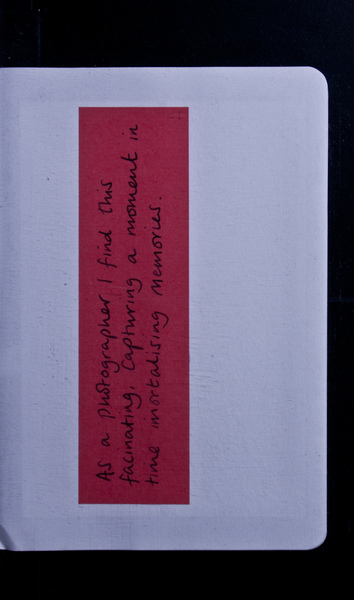 As a photographer I find this
facinating. Capturing a moment in
time imortalising memories.